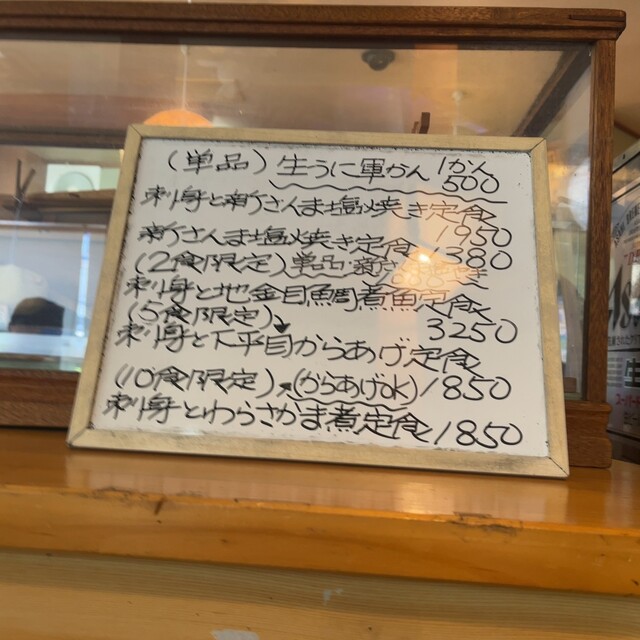 (単品) 生うに軍かん 1かん 500
刺身と新さんま塩焼き定食 1950
新さんま塩焼き定食 1380
(2食限定) 単品・新さんま
刺身と地金目鯛煮魚定食 3250
(5食限定)
刺身と下平目からあげ定食 1850
(10食限定) (からあげok)
刺身とわらさかま煮定食 1850